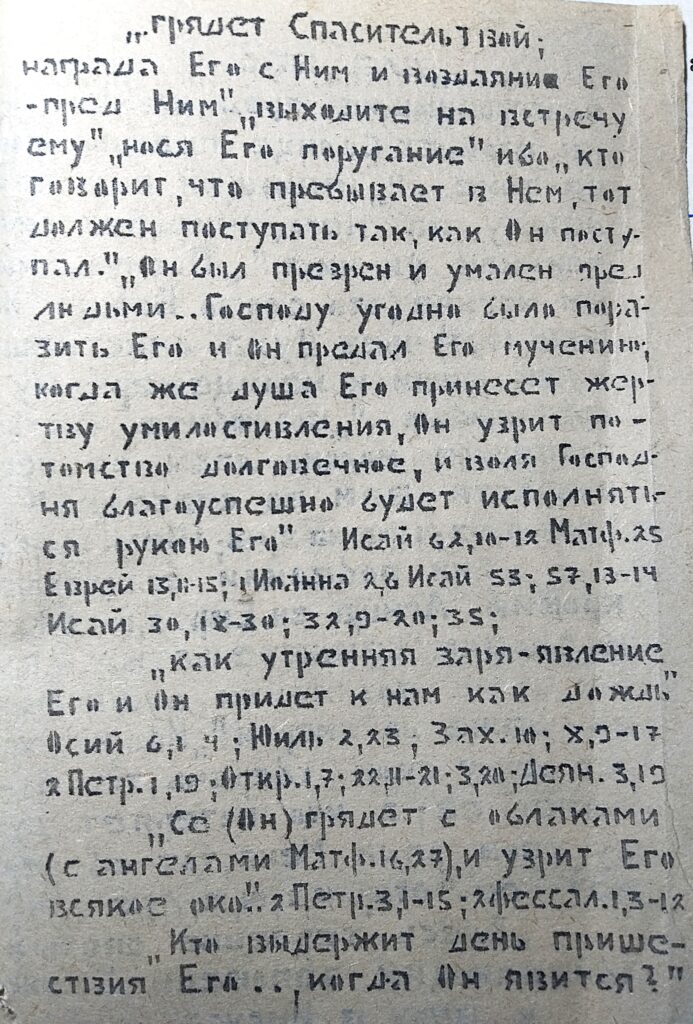 „грядет Спаситель твой;
награда Его с Ним и воздаяние Его
-пред Ним" „выходите на встречу
ему" „нося Его поругание" ибо „кто
говорит, что пребывает в Нем, тот
должен поступать так, как Он посту-
пал." „Он был презрен и умален пред
людьми.. Господу угодно было пора-
зить Его и Он предал Его мучению;
когда же душа Его принесет жер-
тву умилостивления, Он узрит по-
томство долговечное, и воля Господ-
ня благоуспешно будет исполнять-
ся рукою Его" Исай 62,10-12 Матф.25
Еврей 13,11-15; 1 Иоанна 2,6 Исай 53; 57,13-14
Исай 30,18-30; 32,9-20; 35;
„как утренняя заря-явление
Его и Он придет к нам как дождь"
Осий 6,1 4; Юиль 2,23; Зах. 10; 8,9-17
2 Петр. 1,19; Откр. 1,7; 22,11-21; 3,20; Деян. 3,19
„Се (Он) грядет с облаками
(с ангелами Матф.16,27), и узрит Его
всякое око". 2 Петр. 3,1-15; 2 фессал. 1,3-12
„Кто выдержит день прише-
ствия Его.., когда Он явится?"